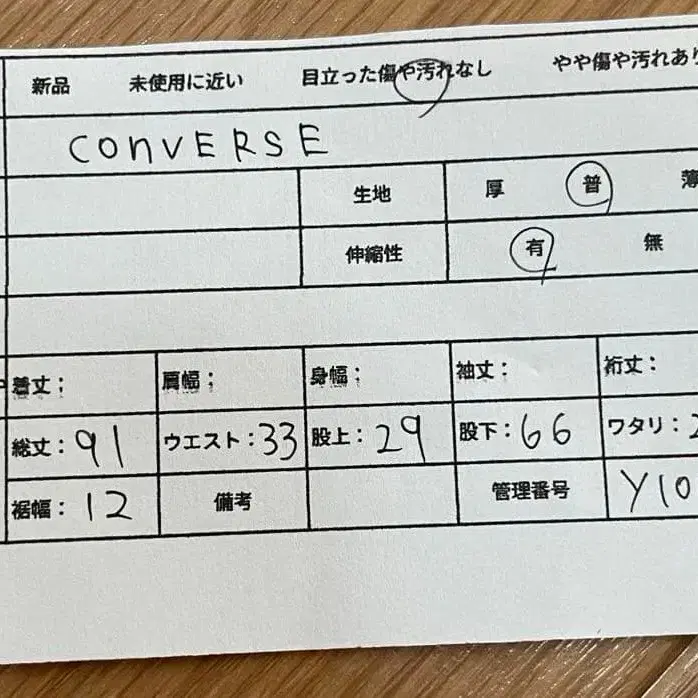 新品 未使用に近い 目立った傷や汚れなし やや傷や汚れあり
CONVERSE
生地 厚 普 薄
伸縮性 有 無
着丈： 肩幅： 身幅： 袖丈： 裄丈：
総丈：91 ウエスト：33 股上：29 股下：66 ワタリ：
裾幅：12 備考 管理番号 Y10